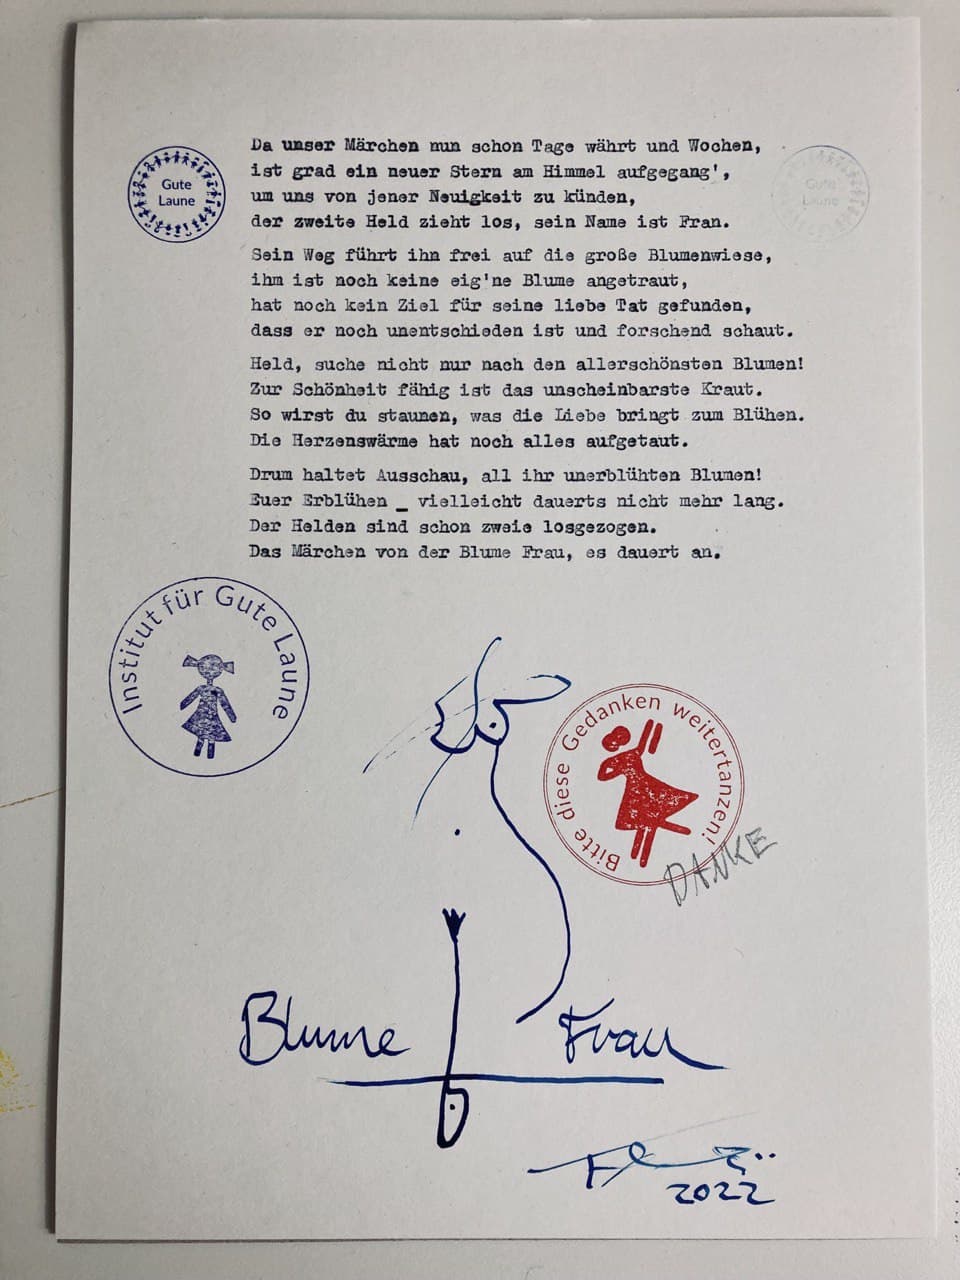 Gute
Laune
Gute
Laune
Da unser Märchen nun schon Tage währt und Wochen,
ist grad ein neuer Stern am Himmel aufgegang',
um uns von jener Neuigkeit zu künden,
der zweite Held zieht los, sein Name ist Fran.
Sein Weg führt ihn frei auf die große Blumenwiese,
ihm ist noch keine eig'ne Blume angetraut,
hat noch kein Ziel für seine liebe Tat gefunden,
dass er noch unentschieden ist und forschend schaut.
Held, suche nicht nur nach den allerschönsten Blumen!
Zur Schönheit fähig ist das unscheinbarste Kraut.
So wirst du staunen, was die Liebe bringt zum Blühen.
Die Herzenswärme hat noch alles aufgetaut.
Drum haltet Ausschau, all ihr unerblühten Blumen!
Euer Erblühen _ vielleicht dauerts nicht mehr lang.
Der Helden sind schon zweie losgezogen.
Das Märchen von der Blume Frau, es dauert an.
Institut für Gute Laune
Bitte diese Gedanken weitertanzen!
DANKE
Blume Frau
2022